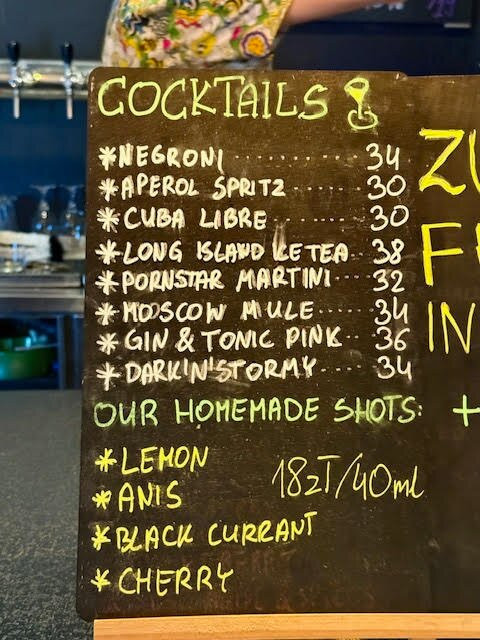 COCKTAILS
*NEGRONI ........... 34
*APEROL SPRITZ ....... 30
*CUBA LIBRE ........ 30
*LONG ISLAND ICE TEA .. 38
*PORNSTAR MARTINI ... 32
*MOSCOW MULE ...... 34
*GIN & TONIC PINK ... 36
*DARK'N'STORMY .... 34
OUR HOMEMADE SHOTS: +
*LEMON
18zł/40ml
*ANIS
*BLACK CURRANT
*CHERRY
IN